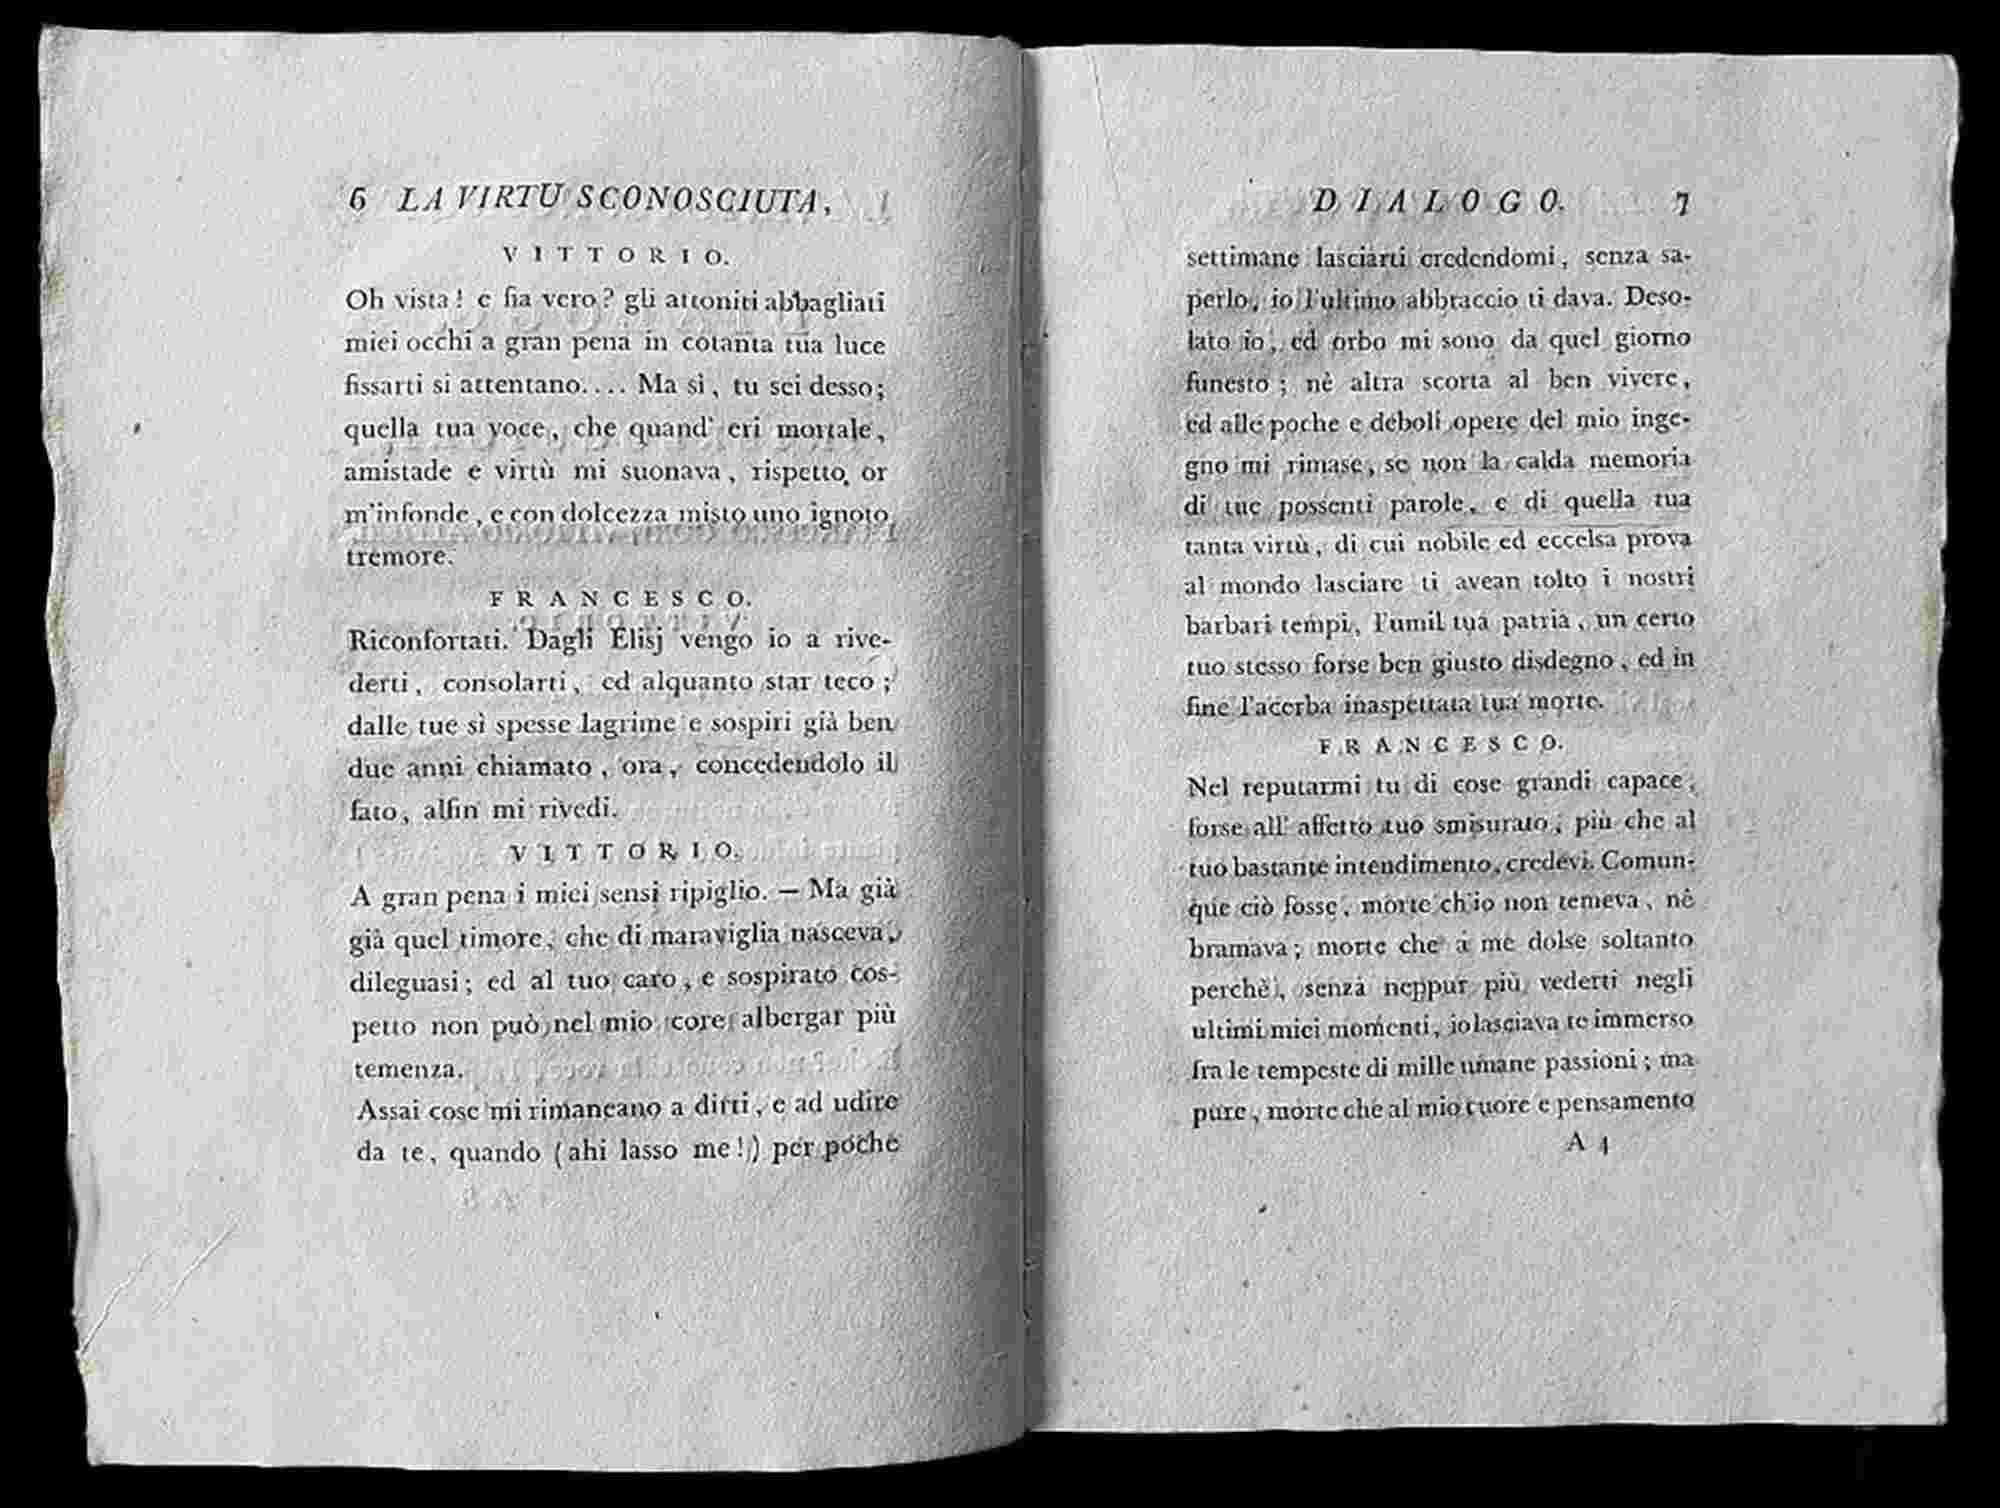 6 LA VIRTU SCONOSCIUTA,
VITTORIO.
Oh vista! e fia vero? gli attoniti abbagliati
miei occhi a gran pena in cotanta tua luce
fissarti si attentano.... Ma sì, tu sei desso;
quella tua voce, che quand' eri mortale,
amistade e virtù mi suonava, rispetto or
m'infonde, e con dolcezza misto uno ignoto
tremore.
FRANCESCO.
Riconfortati. Dagli Elisj vengo io a rive-
derti, consolarti, ed alquanto star teco;
dalle tue sì spesse lagrime e sospiri già ben
due anni chiamato, ora, concedendolo il
fato, alfin mi rivedi.
VITTORIO.
A gran pena i miei sensi ripiglio. — Ma già
già quel timore, che di maraviglia nasceva,
dileguasi; ed al tuo caro, e sospirato cos-
petto non può nel mio core albergar più
temenza.
Assai cose mi rimaneano a dirti, e ad udire
da te, quando (ahi lasso me!) per poche
DIALOGO. 7
settimane lasciarti credendomi, senza sa-
perlo, io l'ultimo abbraccio ti dava. Deso-
lato io, ed orbo mi sono da quel giorno
funesto; nè altra scorta al ben vivere,
ed alle poche e deboli opere del mio inge-
gno mi rimase, se non la calda memoria
di tue possenti parole, e di quella tua
tanta virtù, di cui nobile ed eccelsa prova
al mondo lasciare ti avean tolto i nostri
barbari tempi, l'umil tua patria, un certo
tuo stesso forse ben giusto disdegno, ed in
fine l'acerba inaspettata tua morte.
FRANCESCO.
Nel reputarmi tu di cose grandi capace,
forse all' affetto tuo smisurato, più che al
tuo bastante intendimento, credevi. Comun-
que ciò fosse, morte ch'io non temeva, nè
bramava; morte che a me dolse soltanto
perchè, senza neppur più vederti negli
ultimi miei momenti, io lasciava te immerso
fra le tempeste di mille umane passioni; ma
pure, morte che al mio cuore e pensamento
A 4